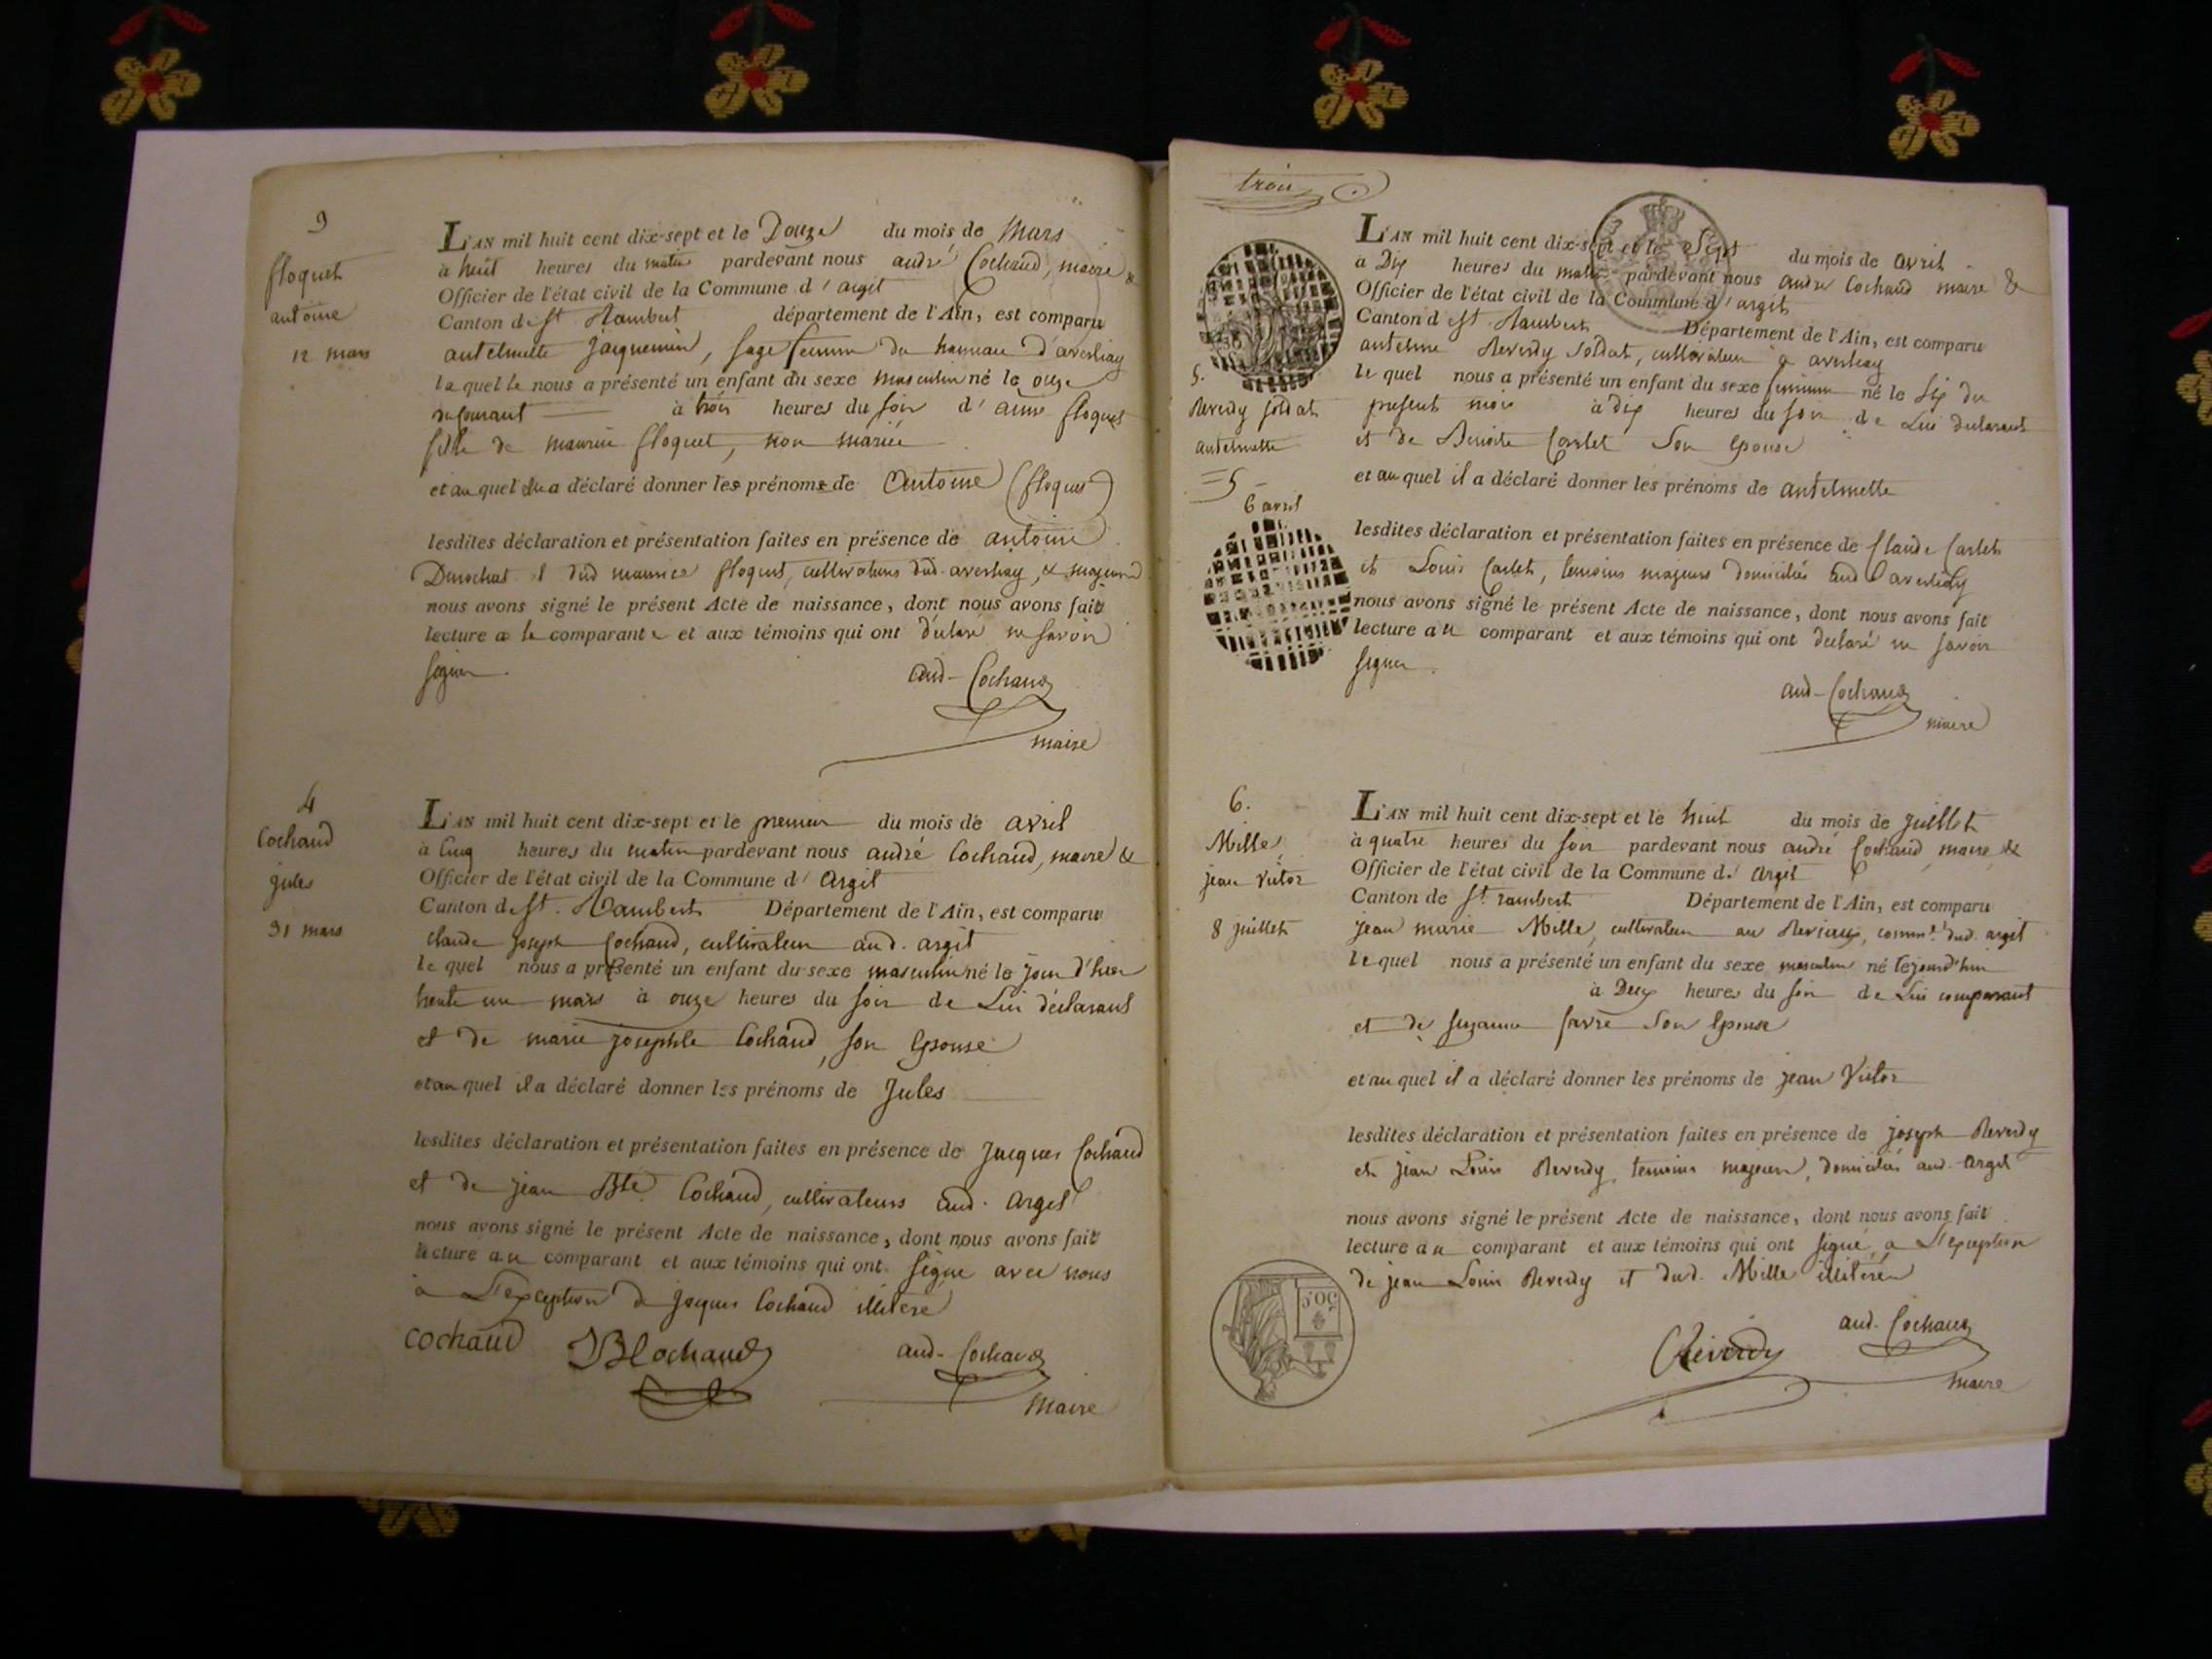 3
floquet
antoine
12 mars
L'AN mil huit cent dix-sept et le Douze du mois de Mars
à huit heures du matin pardevant nous andré Cochaud, maire &
Officier de l'état civil de la Commune d'argit
Canton de St Rambert département de l'Ain, est comparu
antelmette jacquemin, sage femme du hameau d'averliay
laquelle nous a présenté un enfant du sexe masculin né le onze
du courant à trois heures du soir d'anne floquet
fille de maurice floquet, non mariée
et au quel elle a déclaré donner les prénoms de Antoine (floquet)
lesdites déclaration et présentation faites en présence de antoine
Durochat & dud maurice floquet, cultivateurs dud. averliay, & majeurs
nous avons signé le présent Acte de naissance, dont nous avons fait
lecture a la comparante et aux témoins qui ont déclaré ne savoir
signer.
and-Cochaud
maire
4
Cochaud
jules
31 mars
L'AN mil huit cent dix-sept et le premier du mois de avril
à Cinq heures du matin pardevant nous andré Cochaud, maire &
Officier de l'état civil de la Commune d'Argit
Canton de St. Rambert Département de l'Ain, est comparu
claude joseph Cochaud, cultivateur aud. argit
le quel nous a présenté un enfant du sexe masculin né le jour d'hier
trente un mars à onze heures du soir de Lui déclarant
et de marie josephte Cochaud, son Epouse
et au quel il a déclaré donner les prénoms de Jules
lesdites déclaration et présentation faites en présence de Jacques Cochaud
et de jean Bte Cochaud, cultivateurs aud. Argit
nous avons signé le présent Acte de naissance, dont nous avons fait
lecture au comparant et aux témoins qui ont signé avec nous
à L'exception de jacques Cochaud illitéré
cochaud JBCochaud and-Cochaud
Maire
trois
L'AN mil huit cent dix-sept et le Sept du mois de avril
à Dix heures du matin pardevant nous andré Cochaud maire &
Officier de l'état civil de la Commune d'argit
Canton de St. Rambert Département de l'Ain, est comparu
antelme Reverdy Soldat, cultivateur à averliay
le quel nous a présenté un enfant du sexe feminin né le Six du
present mois à dix heures du soir de Lui declarant
et de Benoite Carlet Son Epouse
et au quel il a déclaré donner les prénoms de antelmette
lesdites déclaration et présentation faites en présence de Claude Carlet
et Louis Carlet, temoins majeurs domiciliés aud averliay
nous avons signé le présent Acte de naissance, dont nous avons fait
lecture au comparant et aux témoins qui ont declaré ne savoir
signer.
and-Cochaud
maire
5.
Reverdy soldat
antelmette
5
6 avril
6.
Mille,
jean victor
8 juillet
L'AN mil huit cent dix-sept et le huit du mois de juillet
à quatre heures du soir pardevant nous andré Cochaud, maire &
Officier de l'état civil de la Commune d'Argit
Canton de St. rambert Département de l'Ain, est comparu
jean marie Mille, cultivateur au Reviaux, comme. dud. argit
le quel nous a présenté un enfant du sexe masculin né le jourd'hui
à Deux heures du soir de Lui comparant
et de suzanne favre Son Epouse
et au quel il a déclaré donner les prénoms de jean Victor
lesdites déclaration et présentation faites en présence de joseph Reverdy
et jean Louis Reverdy, temoins majeurs, domiciliés aud. Argit
nous avons signé le présent Acte de naissance, dont nous avons fait
lecture au comparant et aux témoins qui ont signé, a L'exception
de jean Louis Reverdy et dud. Mille illitérés
Reverdy and. Cochaud
maire
50C